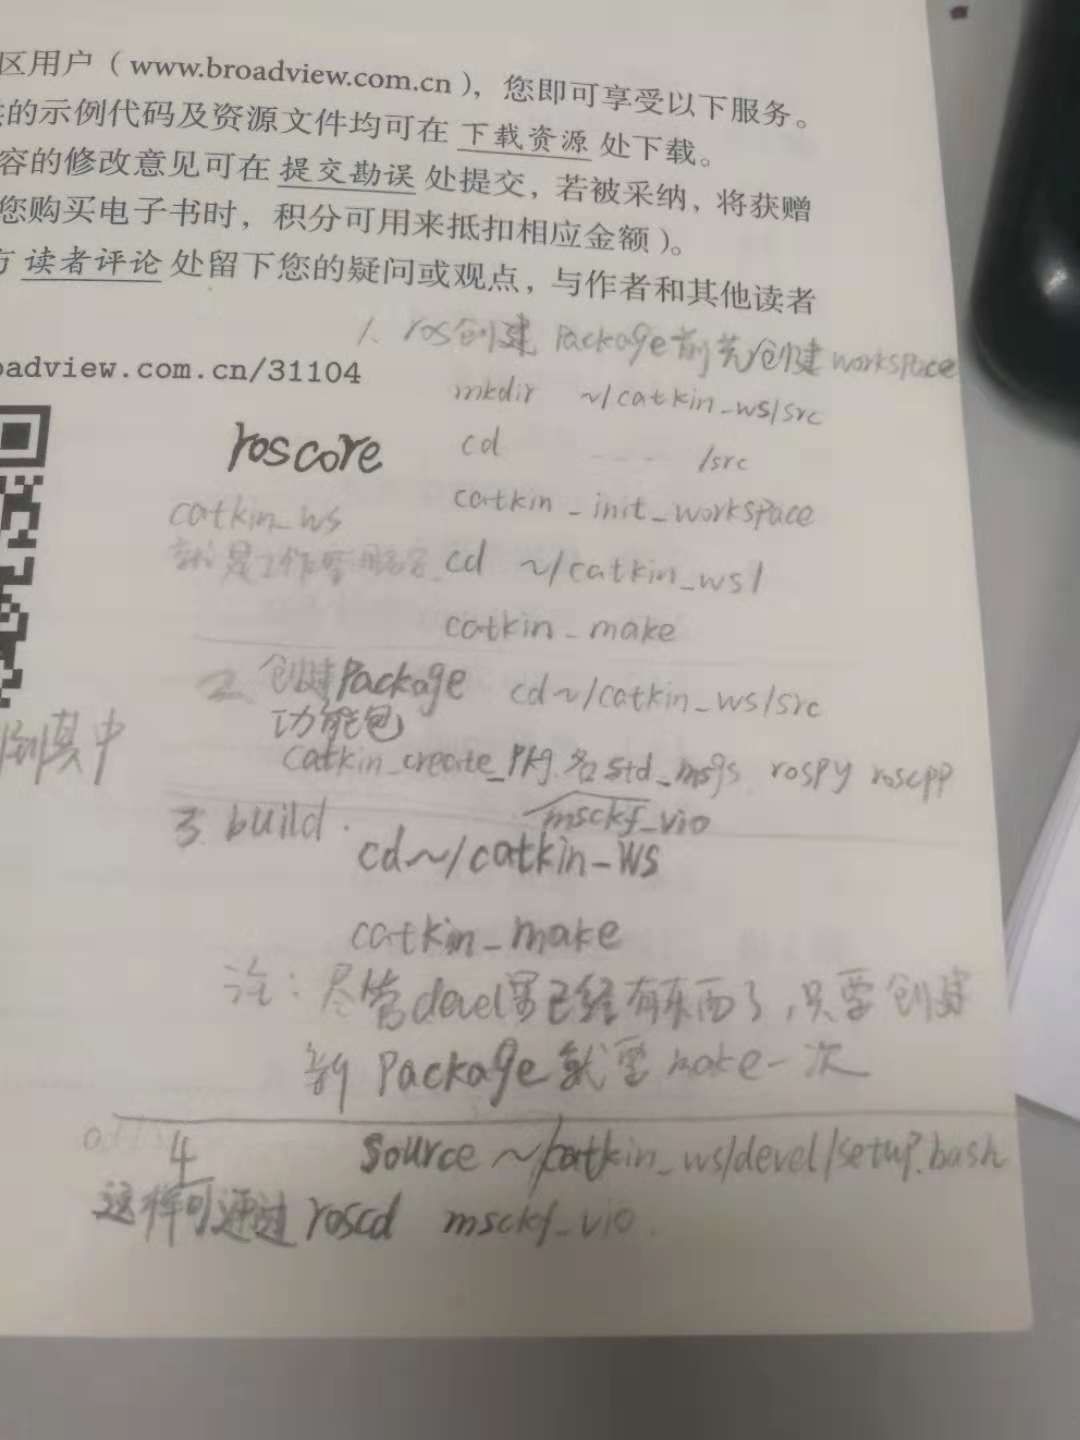 区用户（www.broadview.com.cn），您即可享受以下服务。
的示例代码及资源文件均可在 下载资源 处下载。
容的修改意见可在 提交勘误 处提交，若被采纳，将获赠
您购买电子书时，积分可用来抵扣相应金额）。
方 读者评论 处留下您的疑问或观点，与作者和其他读者
1. ros创建 Package前先创建 workspace
oadview.com.cn/31104
mkdir ~/catkin_ws/src
roscore
cd ---- /src
catkin_ws
catkin_init_workspace
就是工作空间名字
cd ~/catkin_ws/
catkin_make
2. 创建Package cd~/catkin_ws/src
功能包
到其中
catkin_create_pkg 名 std_msgs rospy roscpp
msckf_vio
3. build.
cd~/catkin_ws
catkin_make
注：尽管devel里已经有东西了，只要创建
新 Package就要make一次
4 source ~/catkin_ws/devel/setup.bash
这样可通过 roscd msckf_vio.